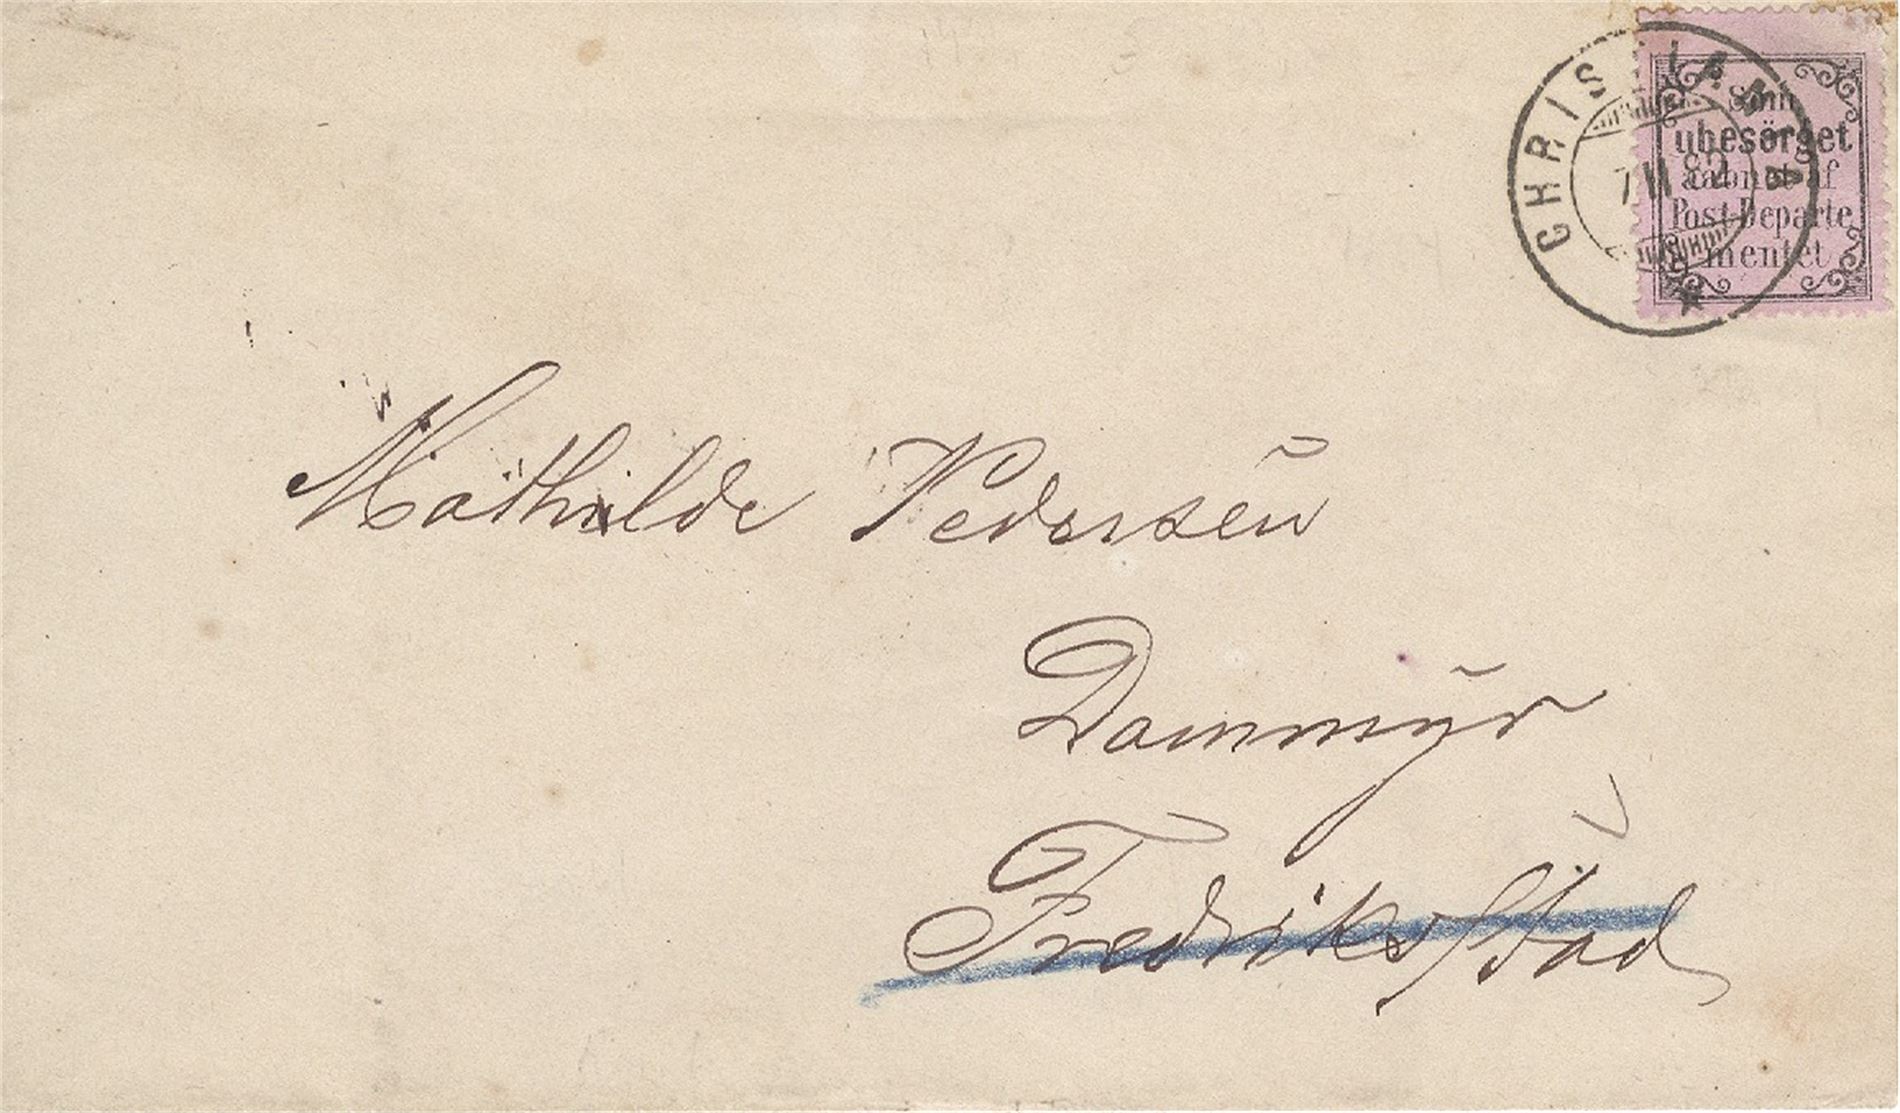 CHRISTIANIA
7 II 89
Som
ubesörget
aabnet af
Post-Departe
mentet
Mathilde Pedersen
Dammyr
Fredriksstad